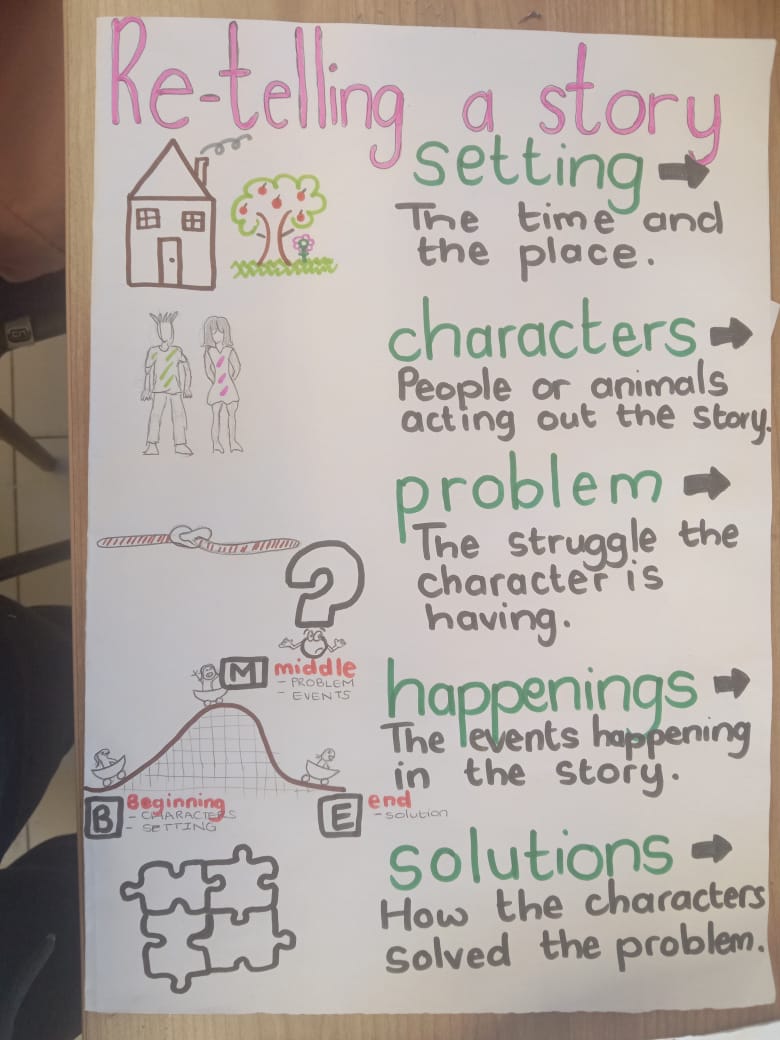 Re-telling a story
setting →
The time and
the place.
characters →
People or animals
acting out the story.
problem →
The struggle the
character is
having.
M middle
- PROBLEM
- EVENTS
happenings →
The events happening
in the story.
B Beginning
- CHARACTERS
- SETTING
E end
- solution
solutions →
How the characters
solved the problem.